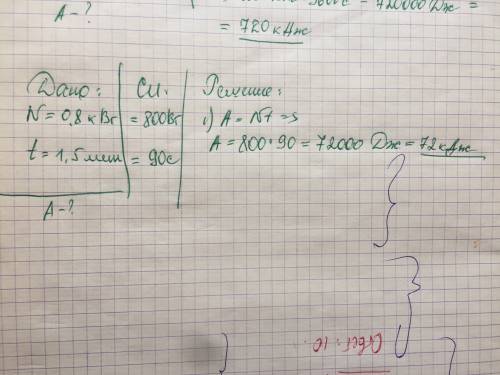 A-?
= 720 кДж
Дано:
N = 0,8 кВт
t = 1,5 мин
A-?
СИ:
= 800Вт
= 90с
Решение:
1) A = Nt =>
A = 800 • 90 = 72000 Дж = 72 кДж
Ответ: 10.